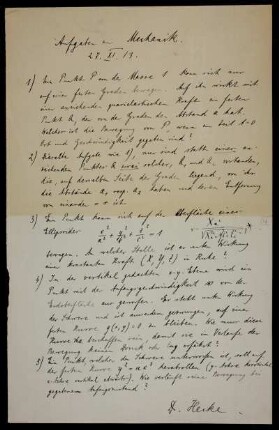 Aufgaben in Mechanik.
27. XI 13.
1) Ein Punkt P von der Masse 1 kann sich nur
auf einer festen Geraden bewegen. Auf ihn wirkt mit
Kraft ein fester
Punkt A, der von der Geraden den Abstand a hat.
Welches ist die Bewegung von P, wenn zur Zeit t=0
Ort und Geschwindigkeit gegeben sind?
2) Dieselbe Aufgabe wie 1), nur sind statt eines
Punktes A zwei solcher, A₁ und A₂ vorhanden,
die, auf derselben Seite der Geraden liegend, von ihr
die Abstände a₁ resp. a₂ haben und deren Entfernung
von einander = c ist.
3) Ein Punkt kann sich auf der Oberfläche eines
Ellipsoides x²/a² + y²/b² + z²/c² = 1
bewegen. An welcher Stelle ist er unter Wirkung
der konstanten Kraft (X, Y, Z) in Ruhe?
4) In der vertikal gedachten x-y Ebene wird ein
Punkt mit der Anfangsgeschwindigkeit v von der
aus geworfen. Er steht unter Wirkung
der Schwere und ist gezwungen, auf einer
festen Kurve y(x,y) = 0 zu bleiben. Wie muss diese
Kurve beschaffen sein, damit sie im Verlaufe der
Bewegung keinen Druck erfährt?
5) Ein Punkt, welcher der Schwere unterworfen ist, soll auf
der festen Kurve
Wie verläuft seine Bewegung bei
gegebenem Anfangszustand?
Dr. Hecke